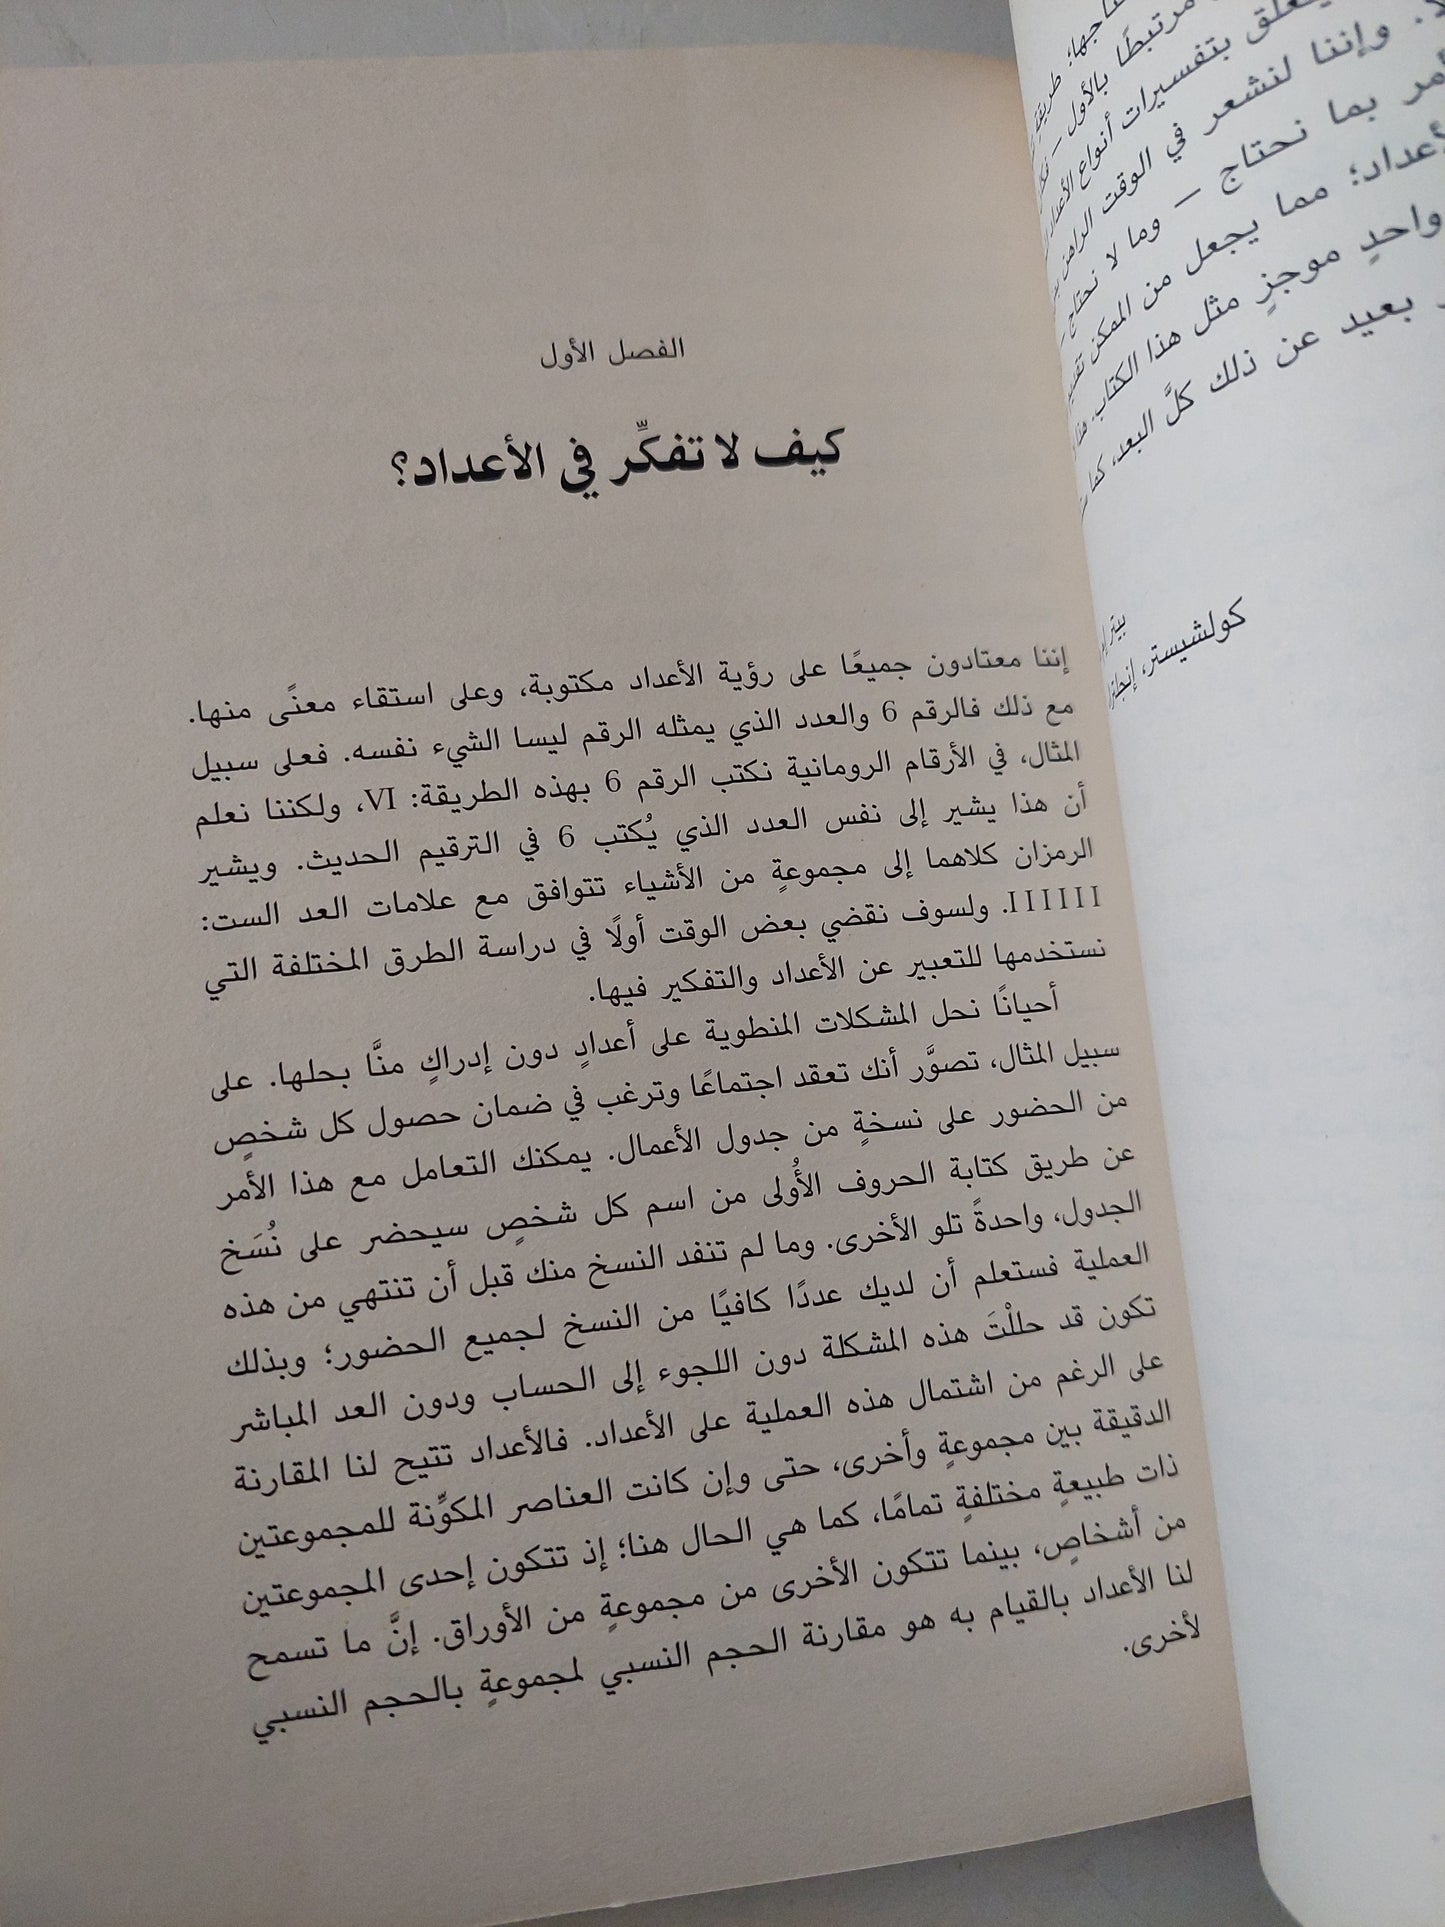 مرتبطًا بالأول –
بتفسيرات أنواع الأعداد
وإننا لنشعر في الوقت الراهن
بما نحتاج – وما لا نحتاج –
مما يجعل من الممكن
واحدٍ موجزٍ مثل هذا الكتاب.
بعيد عن ذلك كلَّ البعد،
كولشيستر، إنجلترا
الفصل الأول
كيف لا تفكِّر في الأعداد؟
إننا معتادون جميعًا على رؤية الأعداد مكتوبة، وعلى استقاء معنًى منها.
مع ذلك فالرقم 6 والعدد الذي يمثله الرقم ليسا الشيء نفسه. فعلى سبيل
المثال، في الأرقام الرومانية نكتب الرقم 6 بهذه الطريقة: VI، ولكننا نعلم
أن هذا يشير إلى نفس العدد الذي يُكتب 6 في الترقيم الحديث. ويشير
الرمزان كلاهما إلى مجموعةٍ من الأشياء تتوافق مع علامات العد الست:
IIIIII. ولسوف نقضي بعض الوقت أولًا في دراسة الطرق المختلفة التي
نستخدمها للتعبير عن الأعداد والتفكير فيها.
أحيانًا نحل المشكلات المنطوية على أعدادٍ دون إدراكٍ منَّا بحلها. على
سبيل المثال، تصوَّر أنك تعقد اجتماعًا وترغب في ضمان حصول كل شخصٍ
من الحضور على نسخةٍ من جدول الأعمال. يمكنك التعامل مع هذا الأمر
عن طريق كتابة الحروف الأُولى من اسم كل شخصٍ سيحضر على نُسَخ
الجدول، واحدةً تلو الأخرى. وما لم تنفد النسخ منك قبل أن تنتهي من هذه
العملية فستعلم أن لديك عددًا كافيًا من النسخ لجميع الحضور؛ وبذلك
تكون قد حللْتَ هذه المشكلة دون اللجوء إلى الحساب ودون العد المباشر
على الرغم من اشتمال هذه العملية على الأعداد. فالأعداد تتيح لنا المقارنة
الدقيقة بين مجموعةٍ وأخرى، حتى وإن كانت العناصر المكوِّنة للمجموعتين
ذات طبيعةٍ مختلفةٍ تمامًا، كما هي الحال هنا؛ إذ تتكون إحدى المجموعتين
من أشخاصٍ، بينما تتكون الأخرى من مجموعةٍ من الأوراق. إنَّ ما تسمح
لنا الأعداد بالقيام به هو مقارنة الحجم النسبي لمجموعةٍ بالحجم النسبي
لأخرى.